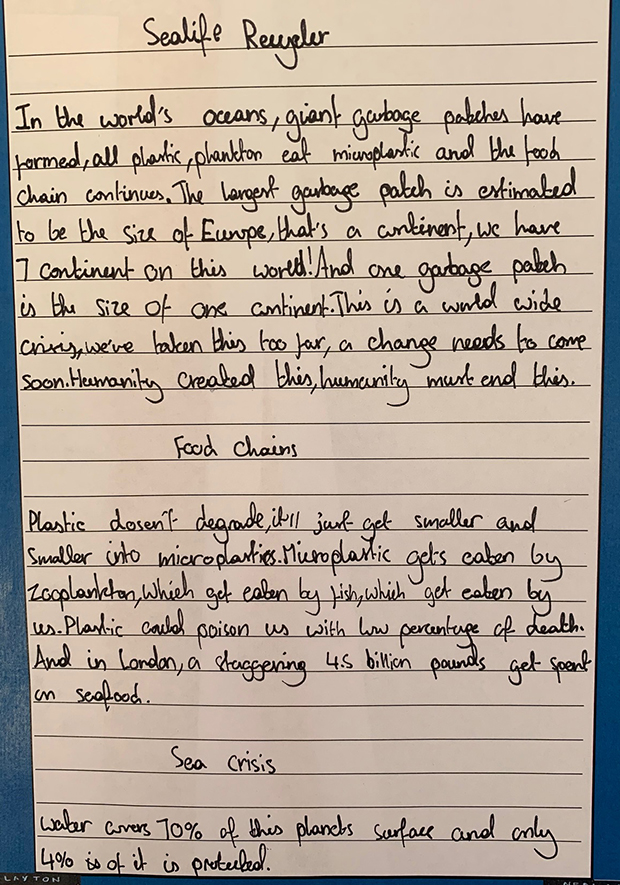 Sealife Recycler
In the world's oceans, giant garbage patches have
formed, all plastic, plankton eat microplastic and the food
chain continues. The largest garbage patch is estimated
to be the size of Europe, that's a continent, we have
7 continent on this world! And one garbage patch
is the size of one continent. This is a world wide
crisis, we've taken this too far, a change needs to come
soon. Humanity created this, humanity must end this.
Food Chains
Plastic dosen't degrade, it'll just get smaller and
smaller into microplastics. Microplastic gets eaten by
Zooplankton, which get eaten by fish, which get eaten by
us. Plastic could poison us with low percentage of death.
And in London, a staggering 4.5 billion pounds get spent
on seafood.
Sea crisis
Water covers 70% of this planets surface and only
4% is of it is protected.
LAYTON